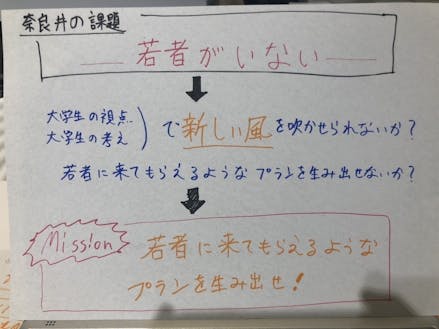 奈良井の課題
若者がいない
大学生の視点
大学生の考え
で新しい風を吹かせられないか？
若者に来てもらえるようなプランを生み出せないか？
Mission
若者に来てもらえるような
プランを生み出せ！